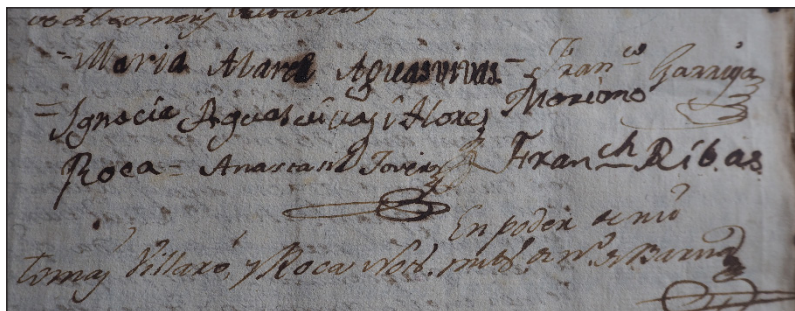 = Maria Abarca Aguasvivas = Fran.co Garriga
= Ignacia Aguasvivas i Flores Mariano
Roca = Anastasi Jover Fran.ch Ribas
En poder de mi
tomas Villaró, y Roca Not. de Barna